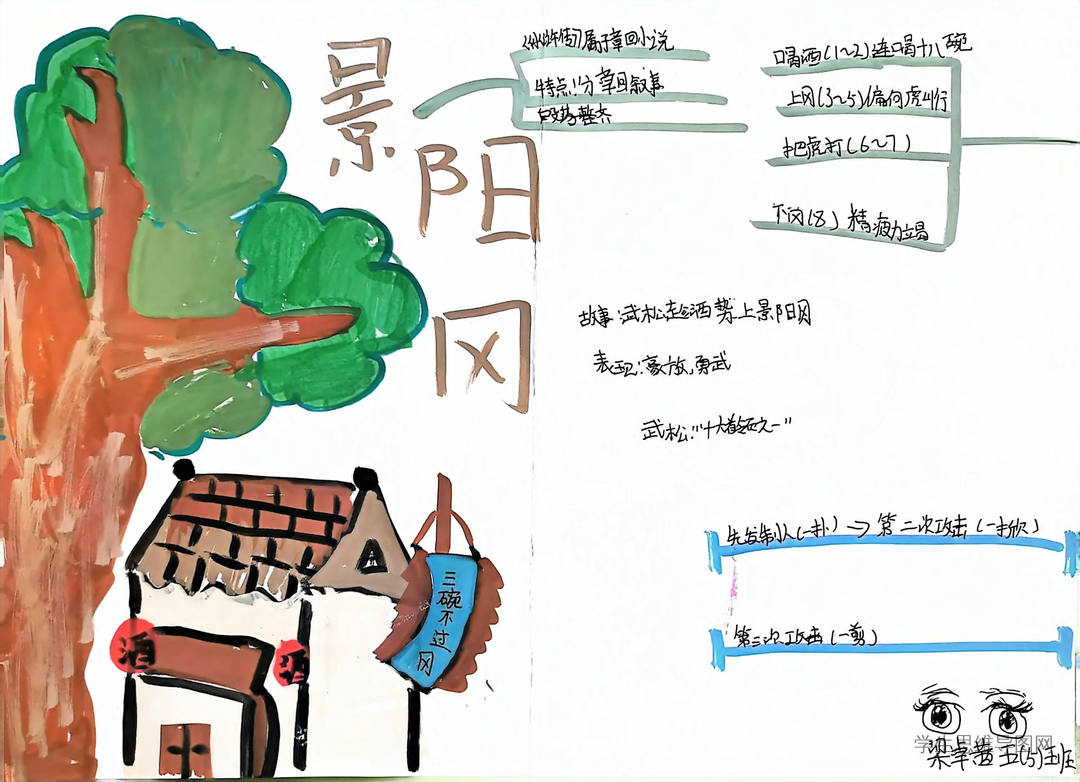 景阳冈
《水浒传》属于章回小说
特点:分章回叙事
段势整齐
喝酒(1~2)连喝十八碗
上冈(3~5)偏向虎山行
把虎打(6~7)
下冈(8)精疲力竭
故事:武松趁酒势上景阳冈
表现:豪放,勇武
武松:"十大首领之一"
先发制人(一扑)→第二次攻击(一掀)
第三次攻击(一剪)
三碗不过冈
酒
酒
五(5)班